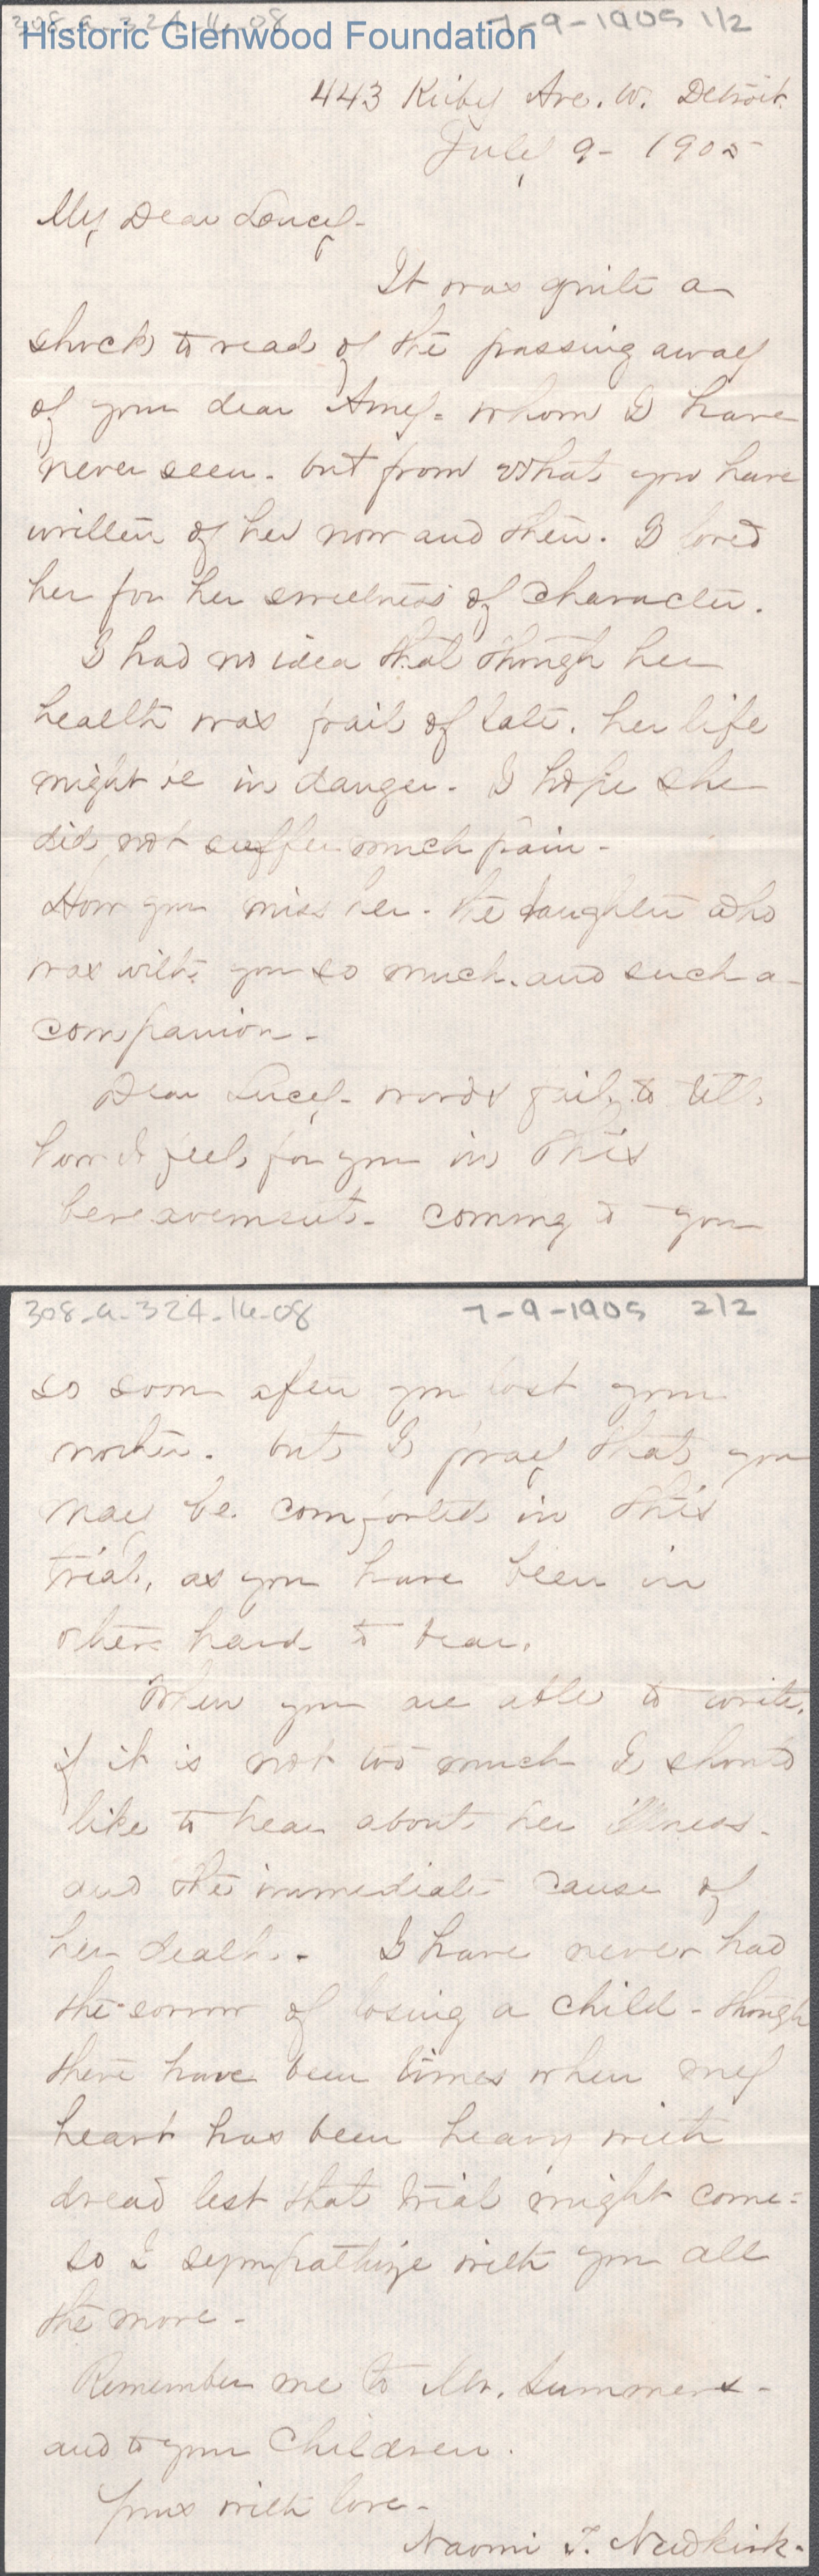 308-a-324-16-08 7-9-1905 1/2
Historic Glenwood Foundation
443 Kirby Ave. W. Detroit.
July 9 - 1905
My Dear Loucy -
It was quite a
shock to read of the passing away
of your dear Amy = whom I have
never seen - but from what you have
written of her now and then. I loved
her for her sweetness of character.
I had no idea that though her
health was frail of late, her life
might be in danger - I hope she
did not suffer much pain -
How you miss her - the daughter who
was with you so much, and such a
companion -
Dear Lucy - words fail to tell
how I feel for you in this
bereavement - coming to you
308-a-324-16-08 7-9-1905 2/2
so soon after you lost your
mother. but I pray that you
may be comforted in this
trial, as you have been in
others hard to bear.
When you are able to write,
if it is not too much I should
like to hear about her illness -
and the immediate cause of
her death. - I have never had
the sorrow of losing a child - though
there have been times when my
heart has been heavy with
dread lest that trial might come =
so I sympathize with you all
the more -
Remember me to Mr. Summers -
and to your children.
Yours with love -
Naomi T. Newkirk.